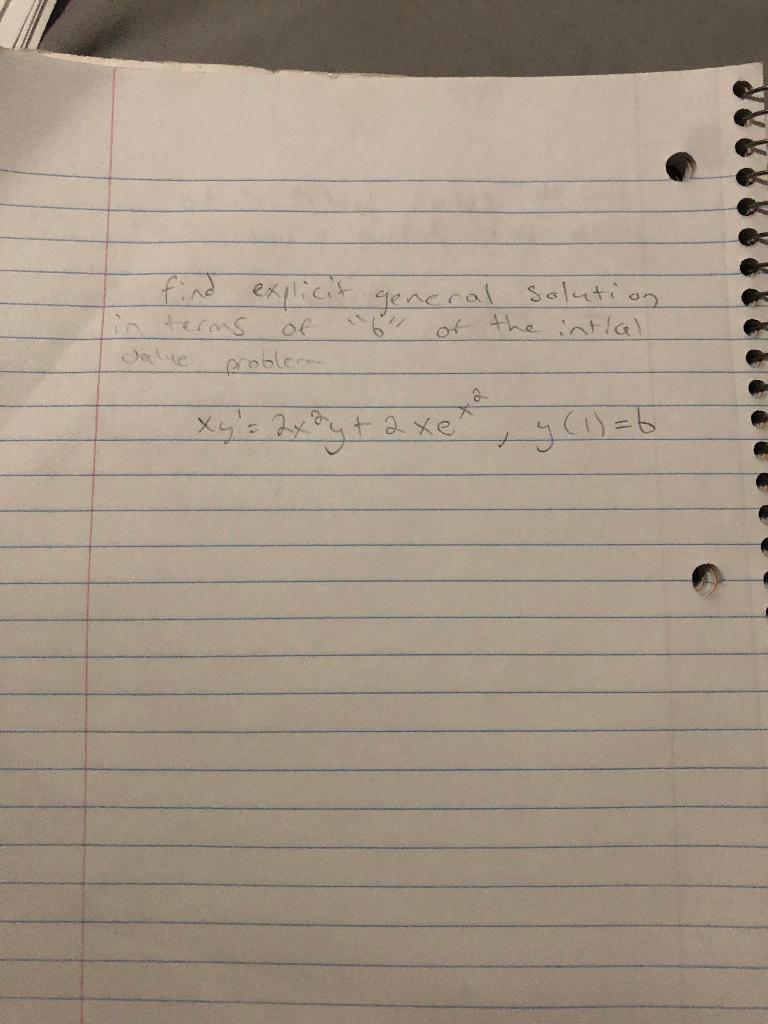 find explicit general solution
in terms of "b" of the intial
value problem
xy' = 2x²y + 2xe^x², y(1)=b